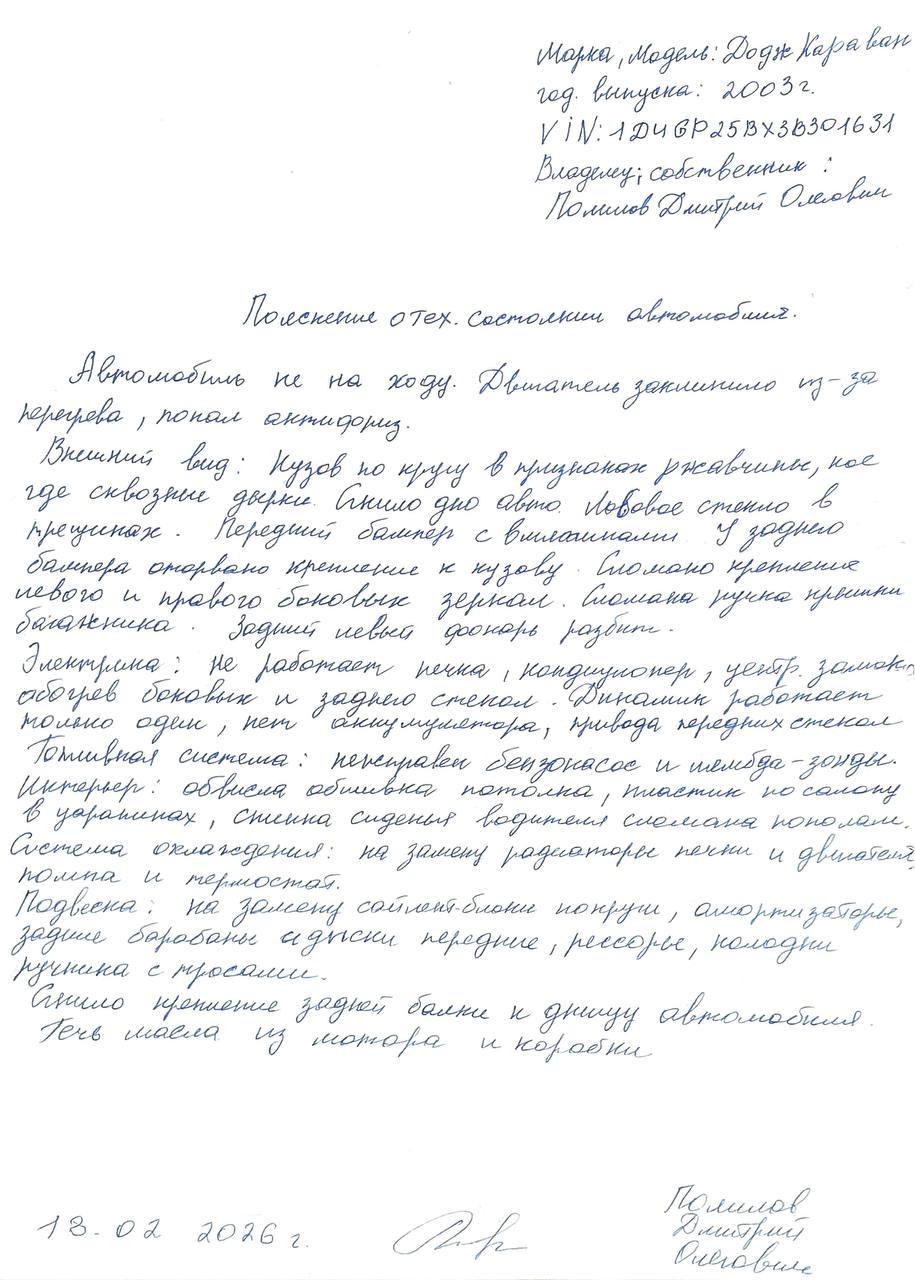 Марка, Модель: Додж Караван
год. выпуска: 2003 г.
VIN: 1D4GP25BX3B301631
Владелец; собственник:
Дмитрий Олегович
Пояснение о тех. состоянии автомобиля.
Автомобиль не на ходу. Двигатель заклинило из-за
перегрева, попал антифриз.
Внешний вид: Кузов по кругу в признаках ржавчины, кое
где сквозные дырки. Сгнило дно авто. Лобовое стекло в
трещинах. Передний бампер с вмятинами. У заднего
бампера оторвано крепление к кузову. Сломано крепление
левого и правого боковых зеркал. Сломана ручка крышки
багажника. Задний левый фонарь разбит.
Электрика: не работает печка, кондиционер, центр. замок,
обогрев боковых и заднего стекол. Динамик работает
только один, нет аккумулятора, привода передних стекол
Топливная система: неисправен бензонасос и лямбда-зонды.
Интерьер: обвисла обшивка потолка, пластик по салону
в царапинах, спинка сиденья водителя сломана пополам.
Система охлаждения: на замену радиаторы печки и двигателя,
помпа и термостат.
Подвеска: на замену сайлент-блоки по кругу, амортизаторы,
задние барабаны и диски передние, рессоры, колодки
ручника с тросами.
Сгнило крепление задней балки к днищу автомобиля.
Течь масла из мотора и коробки
13.02 2026 г.
Дмитрий
Олегович